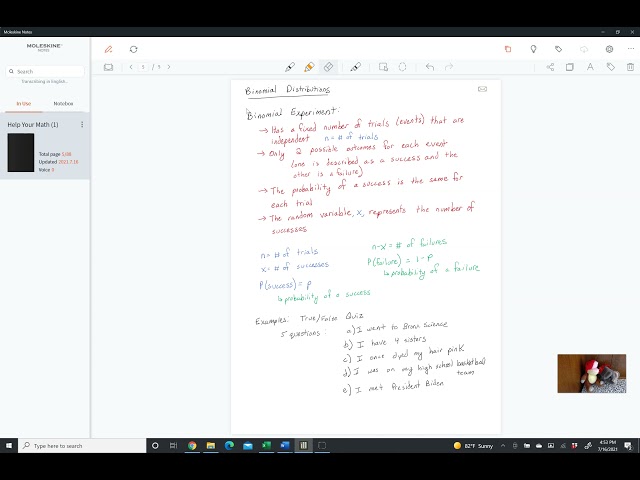 Moleskine Notes
MOLESKINE
NOTES
Search
Transcribing in English...
In Use
Notebox
Help Your Math (1)
Updated 2021.7.16
Voice 0
Binomial Distributions
Binomial Experiment:
→ Has a fixed number of trials (events) that are
independent n = # of trials
→ Only 2 possible outcomes for each event
(one is described as a success and the
other is a failure)
→ The probability of a success is the same for
each trial
→ The random variable, x, represents the number of
successes
n = # of trials
x = # of successes
P(success) = p
↳ probability of a success
n-x = # of failures
P(failure) = 1-p
↳ probability of a failure
Examples: True/False Quiz
5 questions: a) I went to Bronx Science
b) I have 4 sisters
c) I once dyed my hair pink
d) I was on my high school basketball
team
e) I met President Biden
Type here to search
82°F Sunny
4:53 PM
7/16/2021